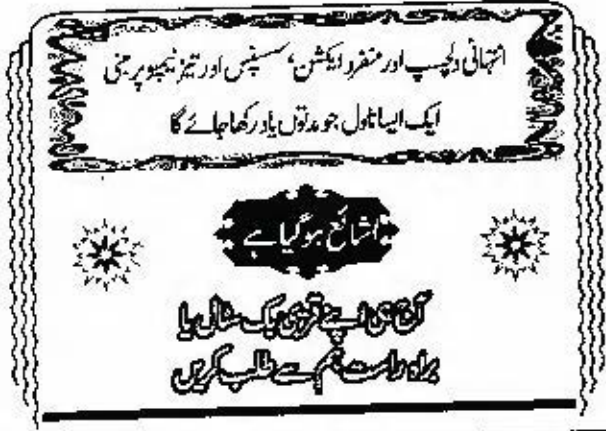 انتہائی دلچسپ اور منفرد ایکشن، سسپنس اور تیز ٹیمپو پر مبنی
ایک ایسا ناول جو مدتوں یاد رکھا جائے گا
شائع ہو گیا ہے
آج ہی اپنے قریبی بک سٹال یا
براہ راست ہم سے طلب کریں